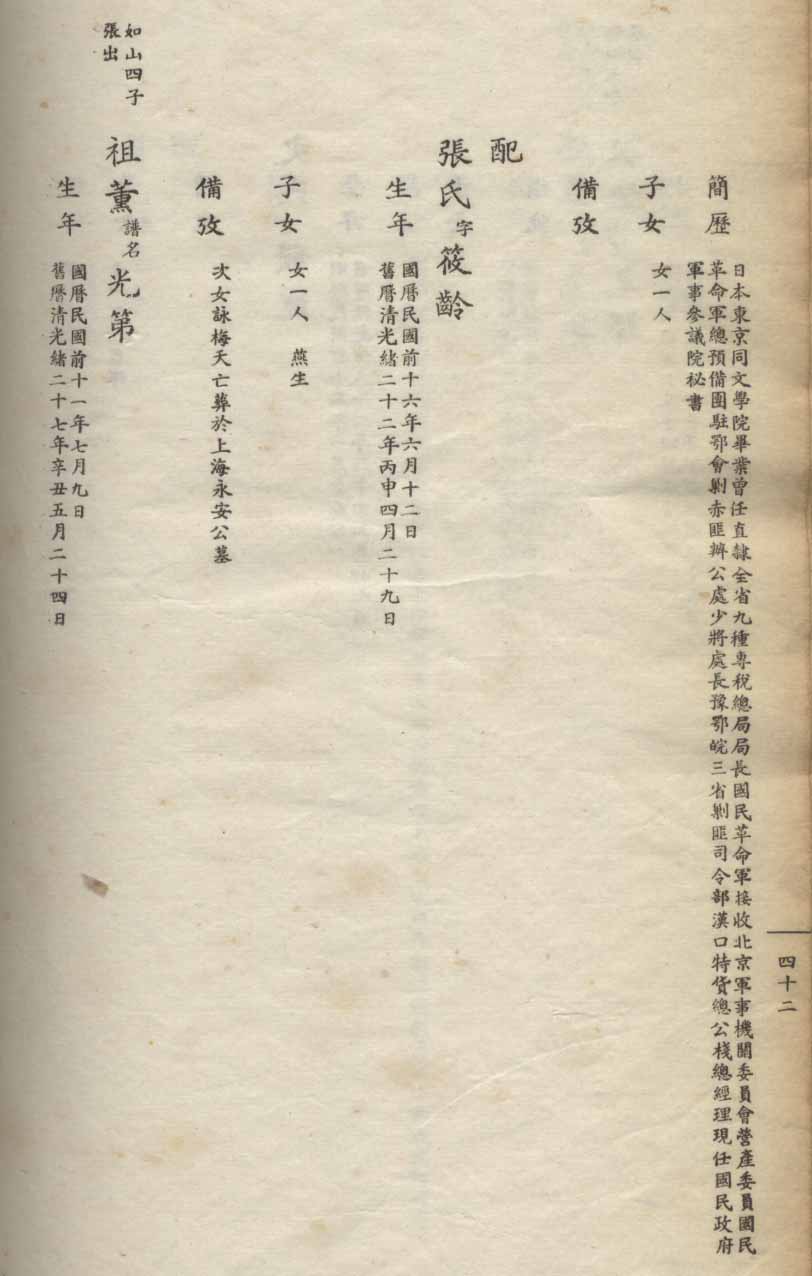 四十二
簡歷
日本東京同文學院畢業曾任直隸全省九種專稅總局局長國民革命軍接收北京軍事機關委員會營產委員國民
革命軍總預備團駐鄂會剿赤匪辦公處少將處長豫鄂皖三省剿匪司令部漢口特貨總公棧總經理現任國民政府
軍事參議院秘書
子女
女一人
備攷
配
張氏字筱齡
生年
國曆民國前十六年六月十二日
舊曆清光緒二十二年丙申四月二十九日
子女
女一人 燕生
備攷
次女詠梅夭亡葬於上海永安公墓
如山四子
張出
祖薰譜名光第
生年
國曆民國前十一年七月九日
舊曆清光緒二十七年辛丑五月二十四日